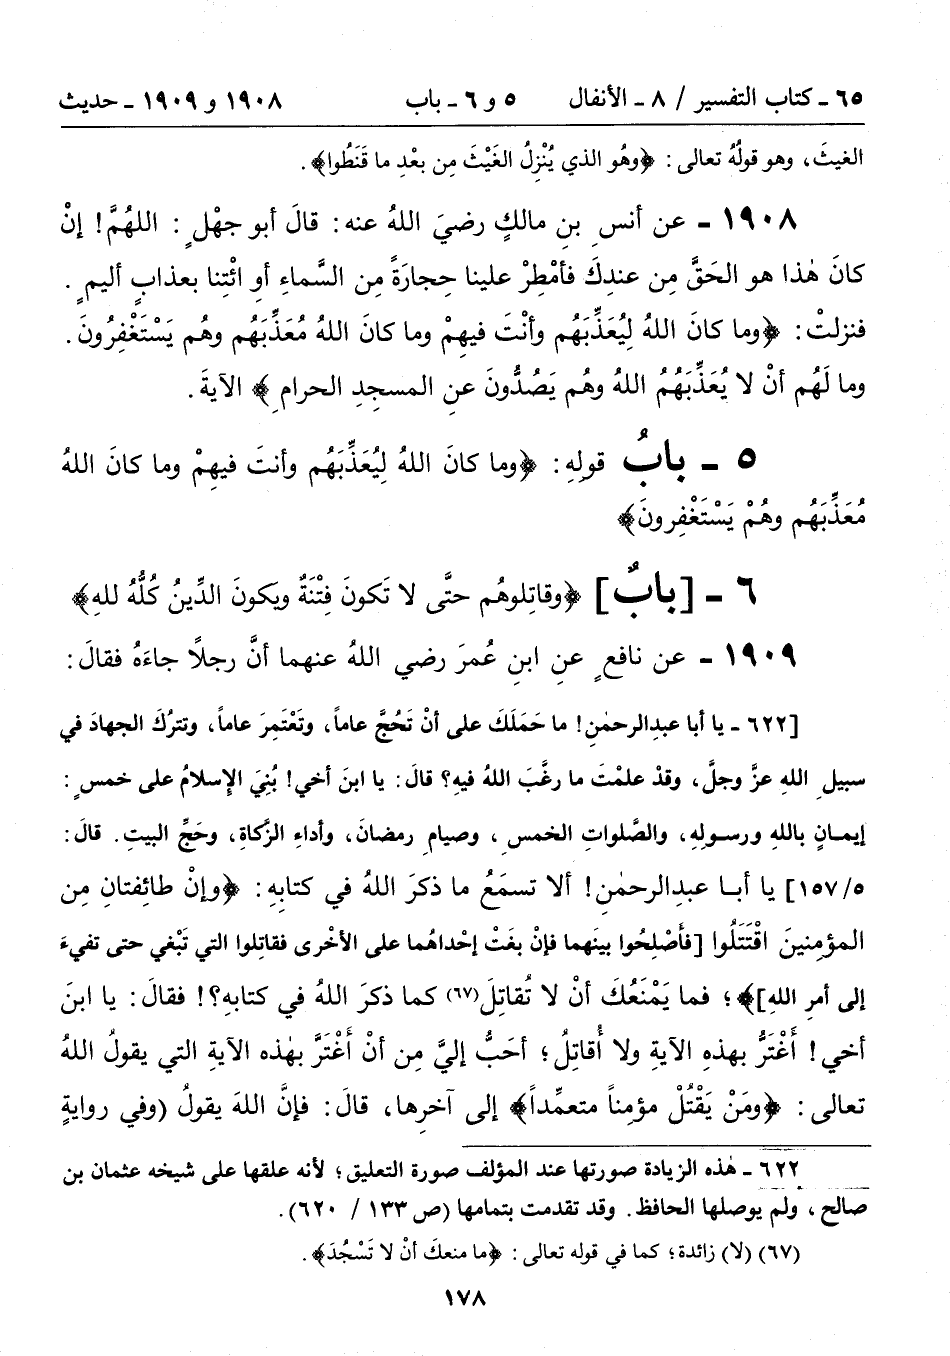 ٦٥ - كتاب التفسير / ٨ - الأنفال ٥ و ٦ - باب ١٩٠٨ و ١٩٠٩ - حديث
الغيثَ، وهو قولُهُ تعالى: ﴿وهُو الذي يُنْزِلُ الغَيْثَ مِن بعْدِ ما قَنَطُوا﴾.
١٩٠٨ - عن أنسِ بنِ مالكٍ رضيَ اللهُ عنه: قالَ أبو جهْلٍ: اللهُمَّ! إنْ
كانَ هٰذا هو الحَقَّ مِن عندِكَ فأمْطِرْ علينا حِجارَةً مِن السَّماءِ أو ائْتِنا بعذابٍ أليمٍ.
فنزلتْ: ﴿وما كانَ اللهُ لِيُعَذِّبَهُم وأنْتَ فيهِمْ وما كانَ اللهُ مُعَذِّبَهُم وهُم يَسْتَغْفِرُونَ.
وما لَهُم أنْ لا يُعَذِّبَهُمُ اللهُ وهُم يَصُدُّونَ عنِ المسجِدِ الحرامِ﴾ الآيةَ.
٥ - بابُ قولِهِ: ﴿وما كانَ اللهُ لِيُعَذِّبَهُم وأنتَ فيهِمْ وما كانَ اللهُ
مُعَذِّبَهُم وهُمْ يَسْتَغْفِرونَ﴾
٦ - [بابٌ] ﴿وقاتِلوهُم حتَّى لا تَكونَ فِتْنَةٌ ويكونَ الدِّينُ كُلُّهُ للهِ﴾
١٩٠٩ - عن نافعٍ عنِ ابنِ عُمرَ رضي اللهُ عنهما أنَّ رجلاً جاءَهُ فقالَ:
[٦٢٢ - يا أبا عبدِالرحمٰنِ! ما حَمَلَكَ على أنْ تَحُجَّ عاماً، وتَعْتَمِرَ عاماً، وتترُكَ الجهادَ في
سبيلِ اللهِ عزَّ وجلَّ، وقدْ علمْتَ ما رغَّبَ اللهُ فيهِ؟ قالَ: يا ابنَ أخي! بُنِيَ الإسلامُ على خمسٍ:
إيمانٍ باللهِ ورسولِهِ، والصَّلواتِ الخمسِ، وصيامِ رمضانَ، وأداءِ الزَّكاةِ، وحَجِّ البيتِ. قالَ:
٥/١٥٧] يا أبا عبدِالرحمٰنِ! ألا تسمَعُ ما ذكرَ اللهُ في كتابِهِ: ﴿وإنْ طائفتانِ مِن
المؤمِنينَ اقْتَتَلُوا [فأَصْلِحُوا بينَهما فإنْ بغَتْ إحْداهُما على الأخْرى فقاتِلوا التي تَبْغي حتى تفيءَ
إلى أمرِ اللهِ]﴾؛ فما يَمْنَعُكَ أنْ لا تُقاتِلَ(٦٧) كما ذكرَ اللهُ في كتابِهِ؟! فقالَ: يا ابنَ
أخي! أَغْتَرُّ بهذهِ الآيةِ ولا أُقاتِلُ؛ أحَبُّ إليَّ مِن أنْ أَغْتَرَّ بهٰذه الآيةِ التي يقولُ اللهُ
تعالى: ﴿ومَنْ يَقْتُلْ مؤمِناً متعمِّداً﴾ إلى آخرِها، قالَ: فإنَّ اللهَ يقولُ (وفي روايةٍ
٦٢٢ - هٰذه الزيادة صورتها عند المؤلف صورة التعليق؛ لأنه علقها على شيخه عثمان بن
صالح، ولم يوصلها الحافظ. وقد تقدمت بتمامها (ص ١٣٣ / ٦٢٠).
(٦٧) (لا) زائدة؛ كما في قوله تعالى: ﴿ما منعكَ أنْ لا تَسْجُدَ﴾.
١٧٨